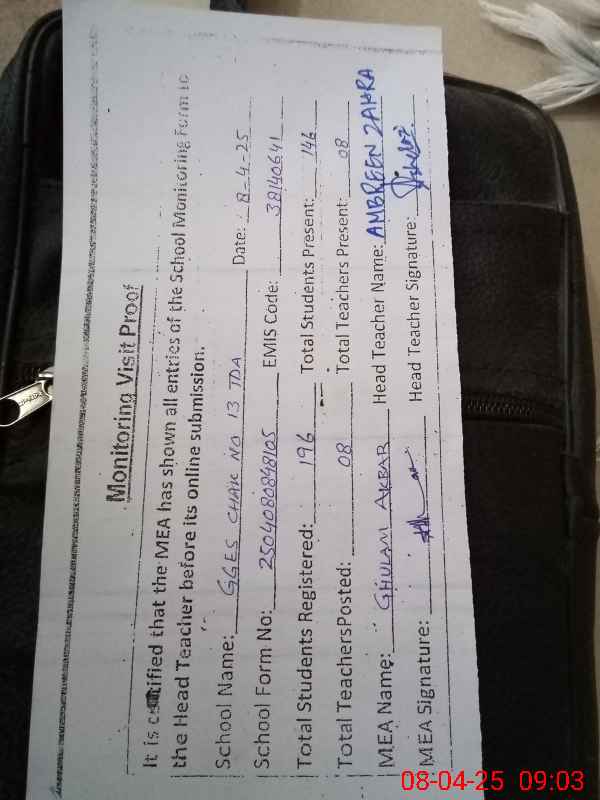 Monitoring Visit Proof
It is certified that the MEA has shown all entries of the School Monitoring Form to
the Head Teacher before its online submission.
School Name: GGES CHAK NO 13 TDA Date: 8-4-25
School Form No: 2504080848105 EMIS Code: 38140641
Total Students Registered: 196 Total Students Present: 146
Total TeachersPosted: 08 Total Teachers Present: 08
MEA Name: GHULAM AKBAR Head Teacher Name: AMBREEN ZAHRA
MEA Signature: Head Teacher Signature:
08-04-25 09:03